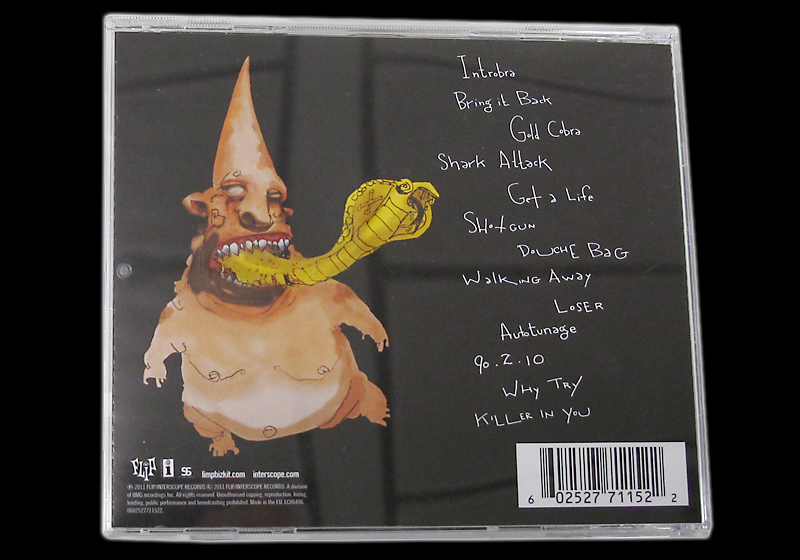 Introbra
Bring it Back
Gold Cobra
Shark Attack
Get a Life
SHotGUN
DOUCHE BAG
Walking Away
LOSER
Autotunage
90.2.10
WHY TRY
KILLER IN YOU
FLIP i S6 limpbizkit.com interscope.com
℗ 2011 FLIP/INTERSCOPE RECORDS © 2011 FLIP/INTERSCOPE RECORDS. A division
of UMG recordings Inc. All rights reserved. Unauthorised copying, reproduction, hiring,
lending, public performance and broadcasting prohibited. Made in the EU. LC06406.
0602527711522.
6 02527 71152 2